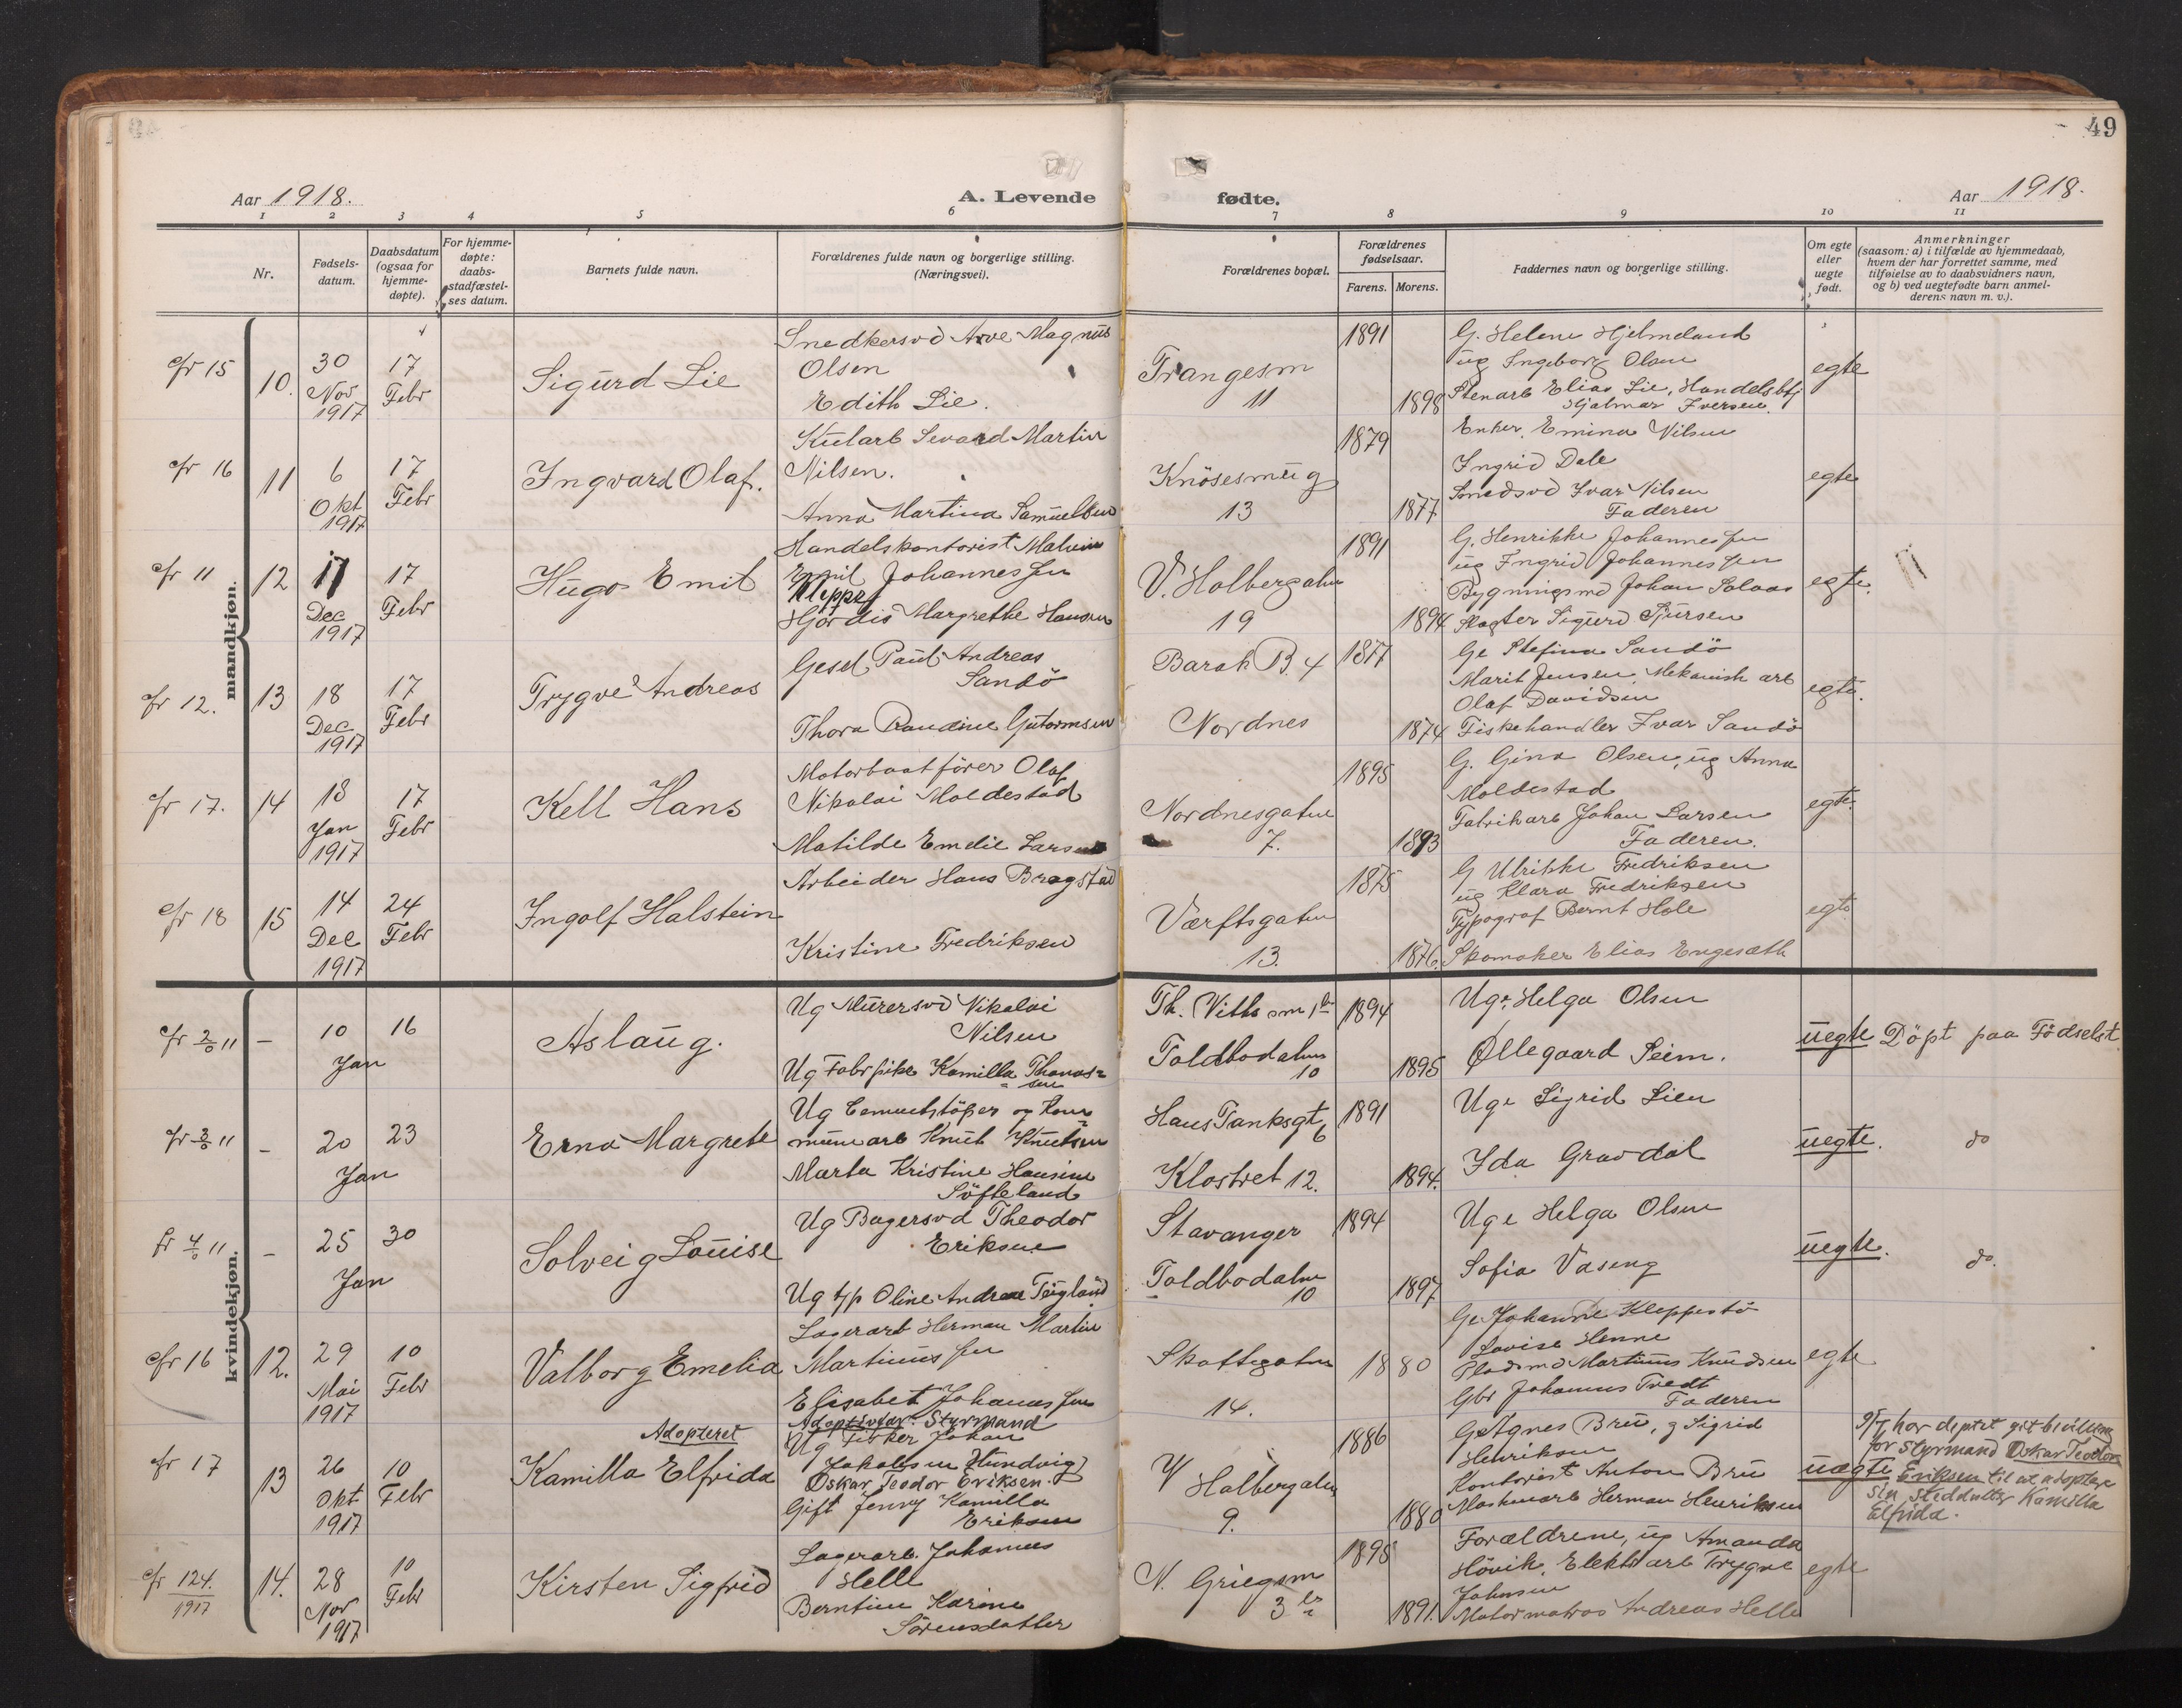 49
Aar 1918.
A. Levende fødte.
Aar 1918.
1 2 3 4 5 6 7 8 9 10 11
Nr.
Fødsels-
datum.
Daabsdatum
(ogsaa for
hjemme-
døpte).
For hjemme-
døpte:
daabs-
stadfæstel-
ses datum.
Barnets fulde navn.
Forældrenes fulde navn og borgerlige stilling.
(Næringsvei).
Forældrenes bopæl.
Forældrenes
fødselsaar.
Farens. Morens.
Faddernes navn og borgerlige stilling.
Om egte
eller
uegte
født.
Anmerkninger
(saasom: a) i tilfælde av hjemmedaab,
hvem der har forrettet samme, med
tilføielse av to daabsvidners navn,
og b) ved uegtefødte barn anmel-
derens navn m. v.).
mandkjøn.
cfr 15
10.
30
Nov
1917
17
Febr
Sigurd Lie
Snedkersvd Arve Magnus
Olsen
Edith Lie.
Trangesm
11
1891
1898
G. Helene Hjelmeland
ug Ingeborg Olsen
Stenarb Elias Lie, Handelsbtj
Hjalmar Iversen.
egte
cfr 16
11
6
Okt
1917
17
Febr
Ingvard Olaf.
Kularb Sevard Martin
Nilsen.
Anna Martina Samuelsen
Knösesmug
13
1879
1877
Enker. Emina Nilsen
Ingrid Dale
Smedsvd Ivar Nilsen
Faderen
egte
cfr 11
12
17
Dec
1917
17
Febr
Hugo Emil
Handelskontorist Malvin
Emil Johannessen
Kleppe
Hjördis Margrethe Hansen
V. Holbergalm
19
1891
1894
G. Henrikke Johannessen
ug Ingrid Johannessen
Bygningsmd Johan Solaas
Slagter Sigurd Sjursen
egte.
cfr 12.
13
18
Dec
1917
17
Febr
Trygve Andreas
Gesel Paul Andreas
Sandö
Thora Randine Gutormsen
Barak B. 4
Nordnes
1877
1874
Ge Stefina Sandö
Marit Jensen, Mekanisk arb
Olaf Davidsen
Fiskehandler Ivar Sandö
egte.
cfr 17.
14
18
Jan
1917
17
Febr
Kell Hans
Motorbaatförer Olaf
Nikolai Moldestad
Matilde Emelie Larsen
Nordnesgaten
7.
1895
1893
G. Gina Olsen, ug Anna
Moldestad
Fabrikarb Johan Larsen
Faderen.
egte.
cfr 18
15
14
Dec
1917
24
Febr
Ingolf Halstein
Arbeider Hans Bragstad
Kristine Fredriksen
Værftsgaten
13.
1875
1876.
G Ulrikke Fredriksen
ug Klara Fredriksen
Typograf Bernt Hole
Skomaker Elias Engesæth
egte
kvindekjøn.
cfr 2/0 "
–
10
Jan
16
Aslaug.
Ug Murersvd Nikolai
Nilsen
Ug Fabrpike Kamilla Thomas-
sen
Th. Witts sm 1 b
Toldbodalm
10
1894
1895
Ugr Helga Olsen
Øllegaard Seim.
uegte
Döpt paa Födselst.
cfr 3/0 "
–
20
Jan
23
Erna Margrete
Ug Cementstöper og Kom-
munearb Knut Knutsen
Marta Kristine Hansine
Söfteland
Hans Tanksgt
6
Klostret 12.
1891
1894.
Uge Sigrid Lien
Ida Gravdal
uegte.
do
fr 4/0 "
–
25
Jan
30
Solveig Louise
Ug Bagersvd Theodor
Eriksen
Ug t/p Oline Andrea Teigland
Stavanger
Toldbodalm
10
1894
1897
Uge Helga Olsen
Sofia Vaseng
uegte.
do.
cfr 16
12.
29
Mai
1917
10
Febr
Valborg Emelia
Lagerarb Herman Martin
Martinussen
Elisabet Johannessen
Skottegaten
14.
1880
Ge Johanne Kleppestö
Lovise Henne
Pladsmd Martinus Knudsen
Gbr Johannes Tvedt
Faderen
egte
cfr 17
13
26
Okt
1917
10
Febr
Adopteret
Kamilla Elfrida
Adoptivfar: Styrmand
Ug Fisker Johan
Jakobsen Hundvig
Oskar Teodor Eriksen.
Gift Jenny Kamilla
Eriksen
V Holbergalm
9.
1886
1880
G Agnes Bru, g Sigrid
Henriksen
Kontorist Anton Bru
Maskinarb Herman Henriksen
uægte
9/7 har deptet git bevilling
for Styrmand Oskar Teodor
Eriksen til at adoptere
sin steddatter Kamilla
Elfrida.
cfr 124.
1917
14.
28
Nov
1917
10
Febr
Kirsten Sigfrid
Lagerarb. Johannes
Helle
Berntine Karine
Sörensdatter
N. Griegsm
3 b
1895
1891.
Forældrene, ug Amanda
Hövik, Elektr arb Trygve
Johnsen
Motormatros Andreas Helle
egte